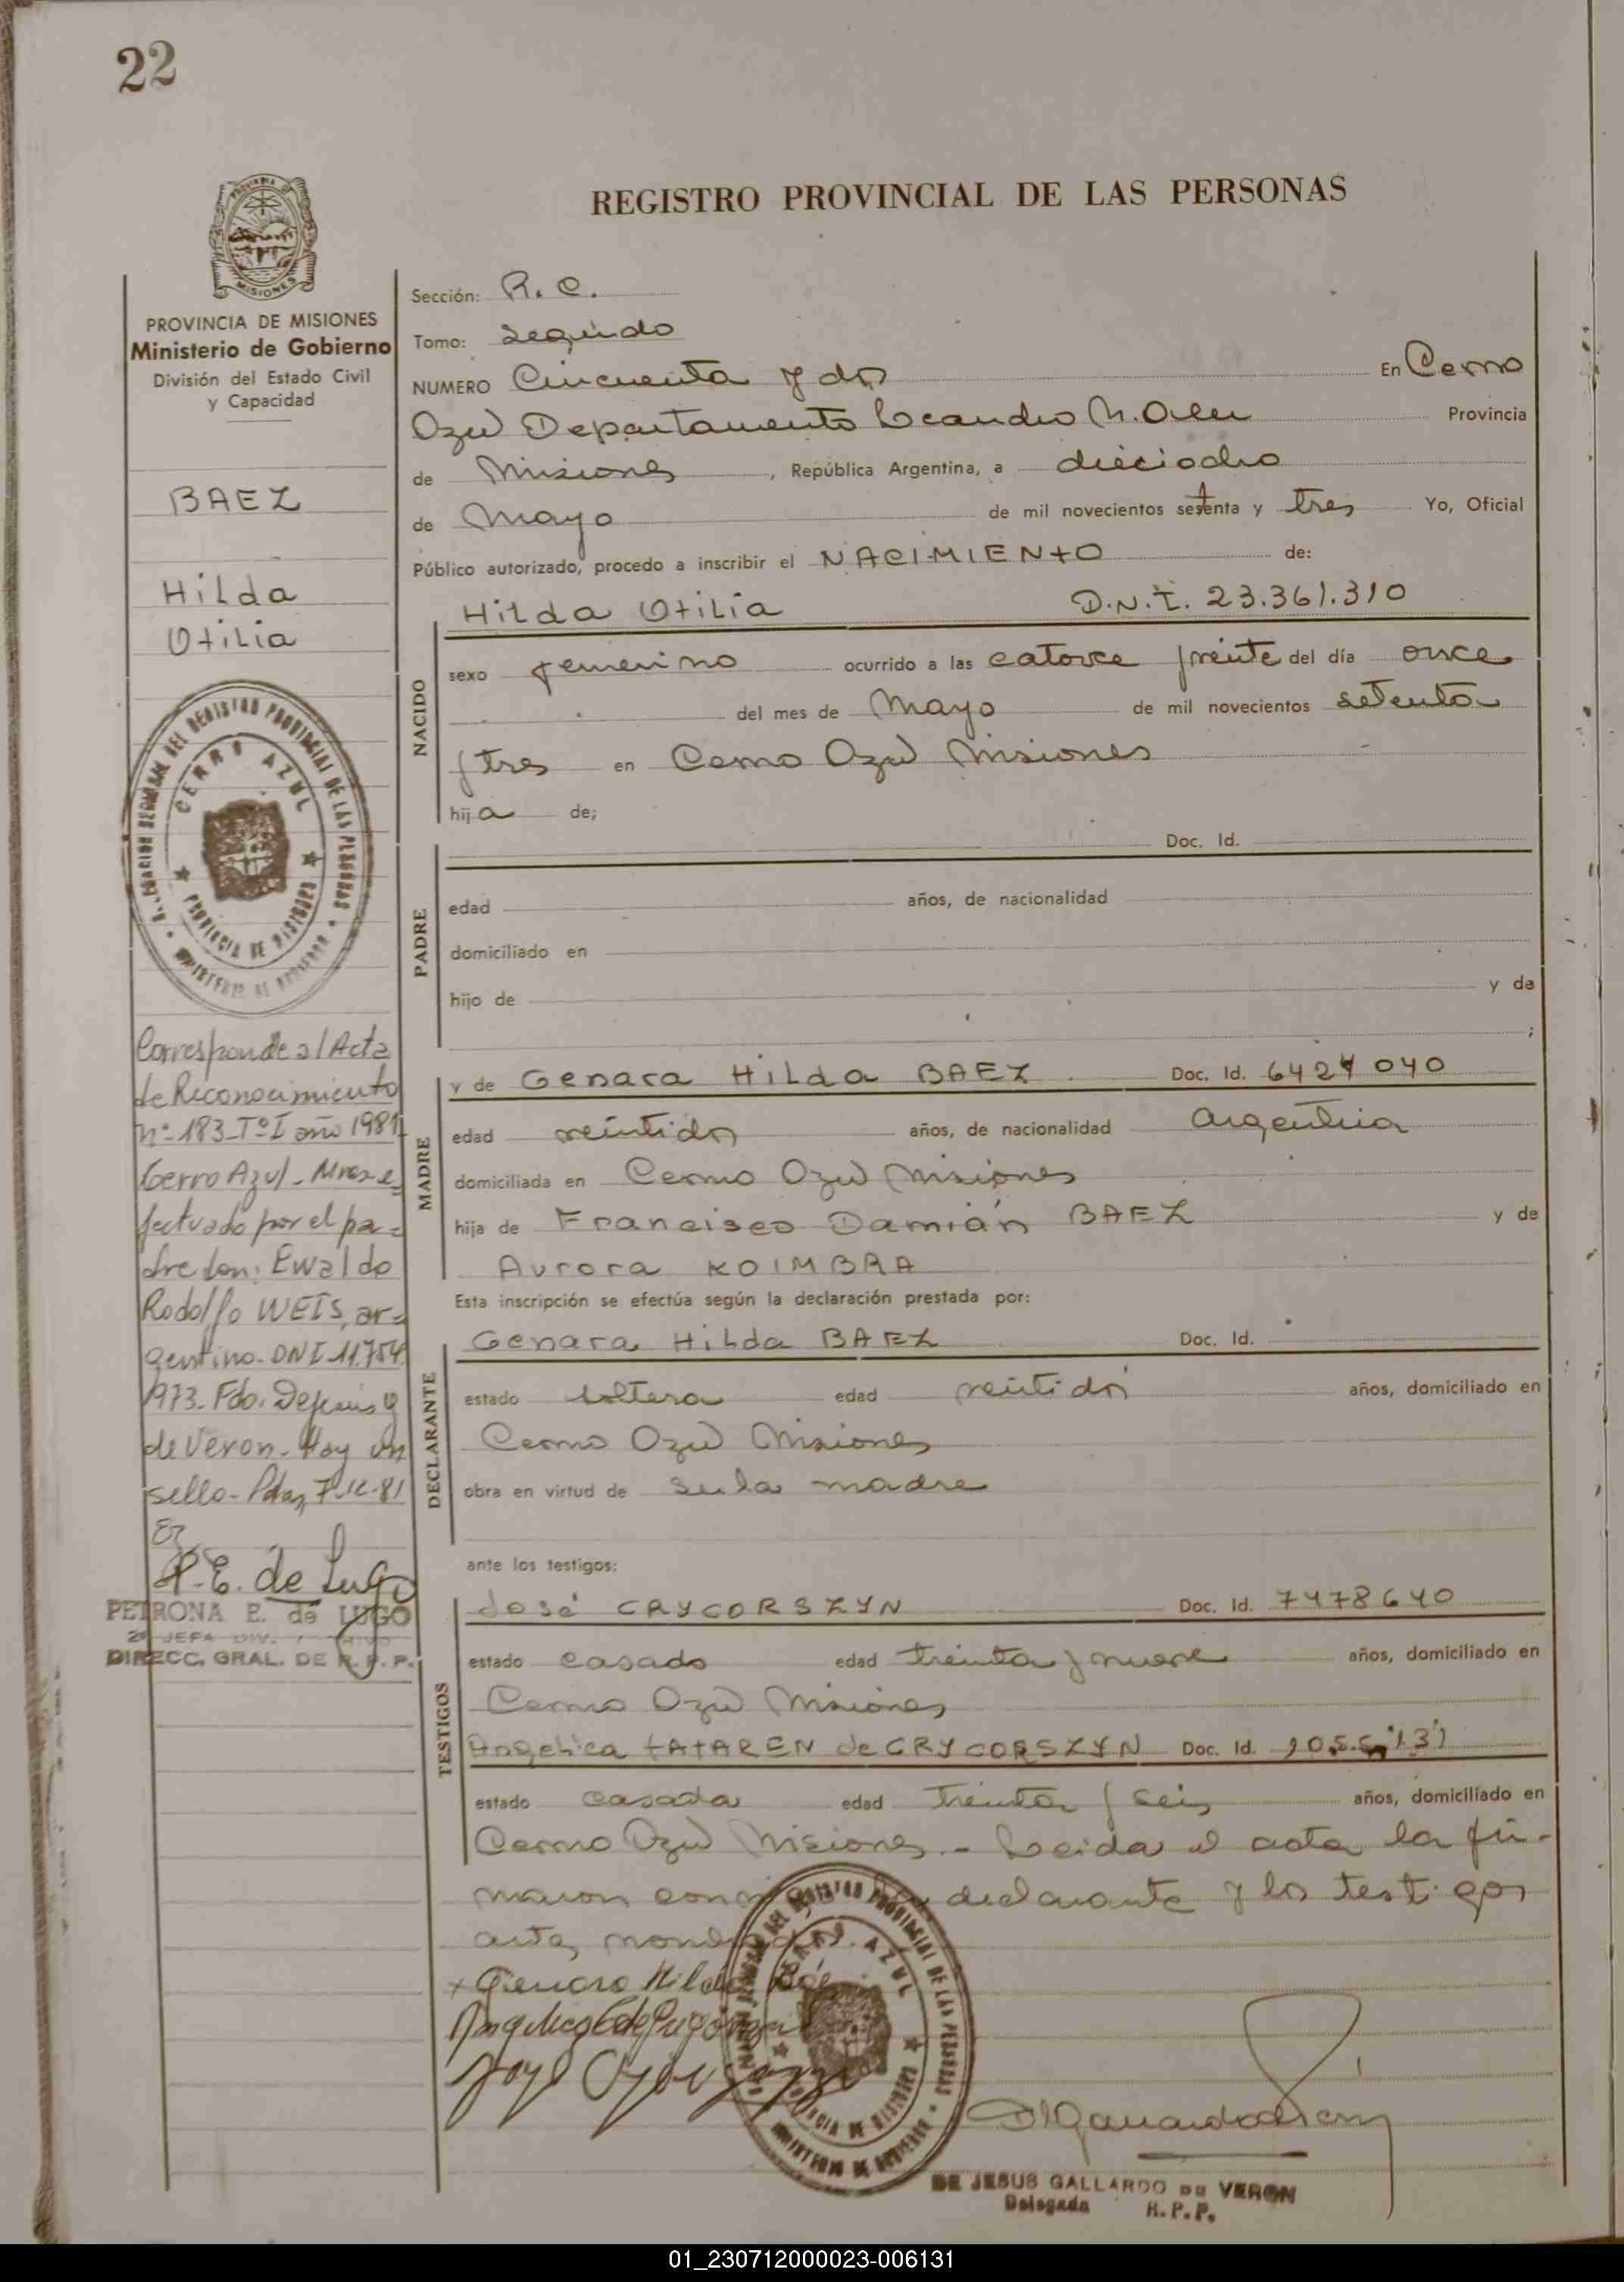 22
REGISTRO PROVINCIAL DE LAS PERSONAS
MISIONES
PROVINCIA DE MISIONES
Ministerio de Gobierno
División del Estado Civil
y Capacidad
BAEZ
Hilda
Otilia
CERRO AZUL
PROVINCIA DE MISIONES
Corresponde al Acta
de Reconocimiento
nº 183-Tº I año 1981
Cerro Azul - Mnes e
fectuado por el pa-
dre don: Ewaldo
Rodolfo WEIS, ar-
gentino. DNI 11.754.
973. Fdo.
de Veron. Hay un
sello - Pdas, 7-12-81
P. E. de Lugo
PETRONA E. de LUGO
2ª JEFA DIV.
DIRECC. GRAL. DE R. P. P.
Sección: R. C.
Tomo: Segundo
NUMERO Cincuenta y dos En Cerro
Azul Departamento Leandro N. Alem Provincia
de Misiones, República Argentina, a dieciocho
de Mayo de mil novecientos setenta y tres Yo, Oficial
Público autorizado, procedo a inscribir el NACIMIENTO de:
NACIDO
Hilda Otilia D.N.I. 23.361.310
sexo femenino ocurrido a las catorce y veinte del día once
del mes de Mayo de mil novecientos setenta
y tres en Cerro Azul Misiones
hija de;
PADRE
Doc. Id.
edad años, de nacionalidad
domiciliado en
hijo de y de
;
MADRE
y de Genara Hilda BAEZ Doc. Id. 6424040
edad veintidos años, de nacionalidad argentina
domiciliada en Cerro Azul Misiones
hija de Francisco Damián BAEZ y de
Aurora KOIMBRA
Esta inscripción se efectúa según la declaración prestada por:
DECLARANTE
Genara Hilda BAEZ Doc. Id.
estado soltera edad veintidos años, domiciliado en
Cerro Azul Misiones
obra en virtud de ser la madre
ante los testigos:
TESTIGOS
José CRYCORSZYN Doc. Id. 7478640
estado casado edad treinta y nueve años, domiciliado en
Cerro Azul Misiones
Angelica TATAREN de CRYCORSZYN Doc. Id.
estado casada edad treinta y seis años, domiciliado en
Cerro Azul Misiones.- Leida el acta la fir-
maron conmigo la declarante y los testigos
antes nombrados.
x Genara Hilda Báez
CERRO AZUL
PROVINCIA DE MISIONES
DE JESUS GALLARDO DE VERON
Delegada R. P. P.
01_230712000023-006131